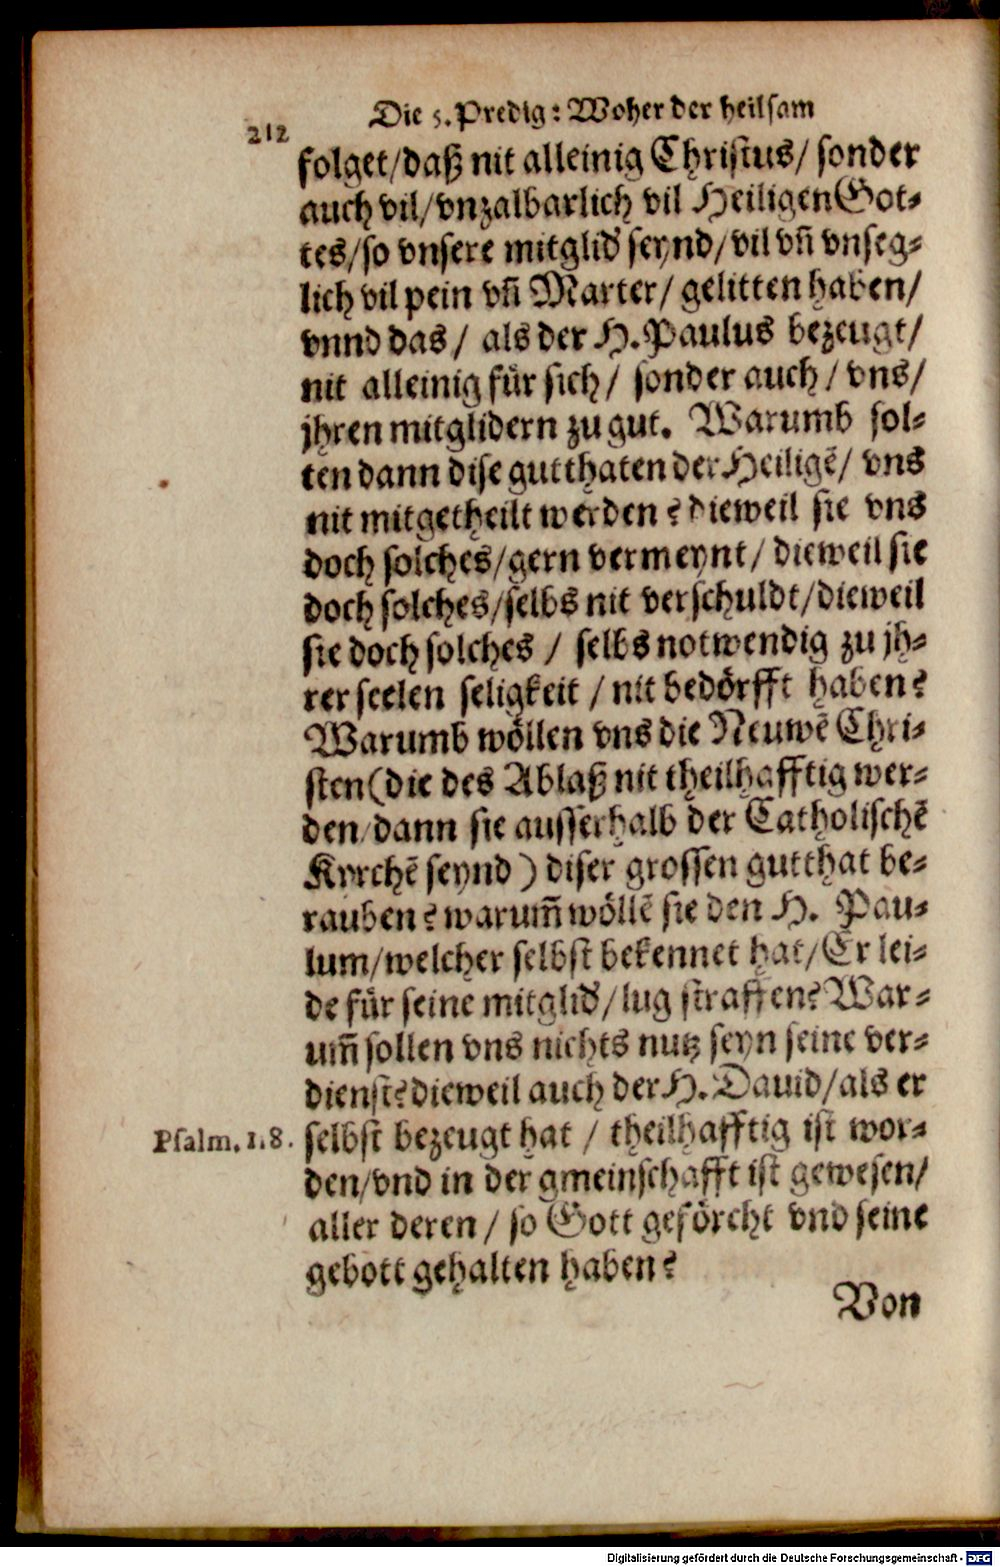 212
Die 5. Predig: Woher der heilsam
folget/daß nit alleinig Christus/ sonder
auch vil/vnzalbarlich vil Heiligen Got⸗
tes/so vnsere mitglid seynd/vil vñ vnseg⸗
lich vil pein vñ Marter/ gelitten haben/
vnnd das/ als der H. Paulus bezeugt/
nit alleinig für sich/ sonder auch/ vns/
jhren mitglidern zu gut. Warumb sol⸗
ten dann dise gutthaten der Heiligẽ/ vns
nit mitgetheilt werden? dieweil sie vns
doch solches/gern vermeynt/ dieweil sie
doch solches/selbs nit verschuldt/dieweil
sie doch solches / selbs notwendig zu jh⸗
rer seelen seligkeit / nit bedörfft haben?
Warumb wöllen vns die Neuwẽ Chri⸗
sten(die des Ablaß nit theilhafftig wer⸗
den/dann sie ausserhalb der Catholischẽ
Kyrchẽ seynd) diser grossen gutthat be⸗
rauben? warum̃ wöllẽ sie den H. Pau⸗
lum/welcher selbst bekennet hat/Er lei⸗
de für seine mitglid/lug straffen? War⸗
um̃ sollen vns nichts nutz seyn seine ver⸗
dienst? dieweil auch der H. Dauid/als er
Psalm. 118. selbst bezeugt hat / theilhafftig ist wor⸗
den/vnd in der gmeinschafft ist gewesen/
aller deren / so Gott geförcht vnd seine
gebott gehalten haben?
Von
Digitalisierung gefördert durch die Deutsche Forschungsgemeinschaft - DFG